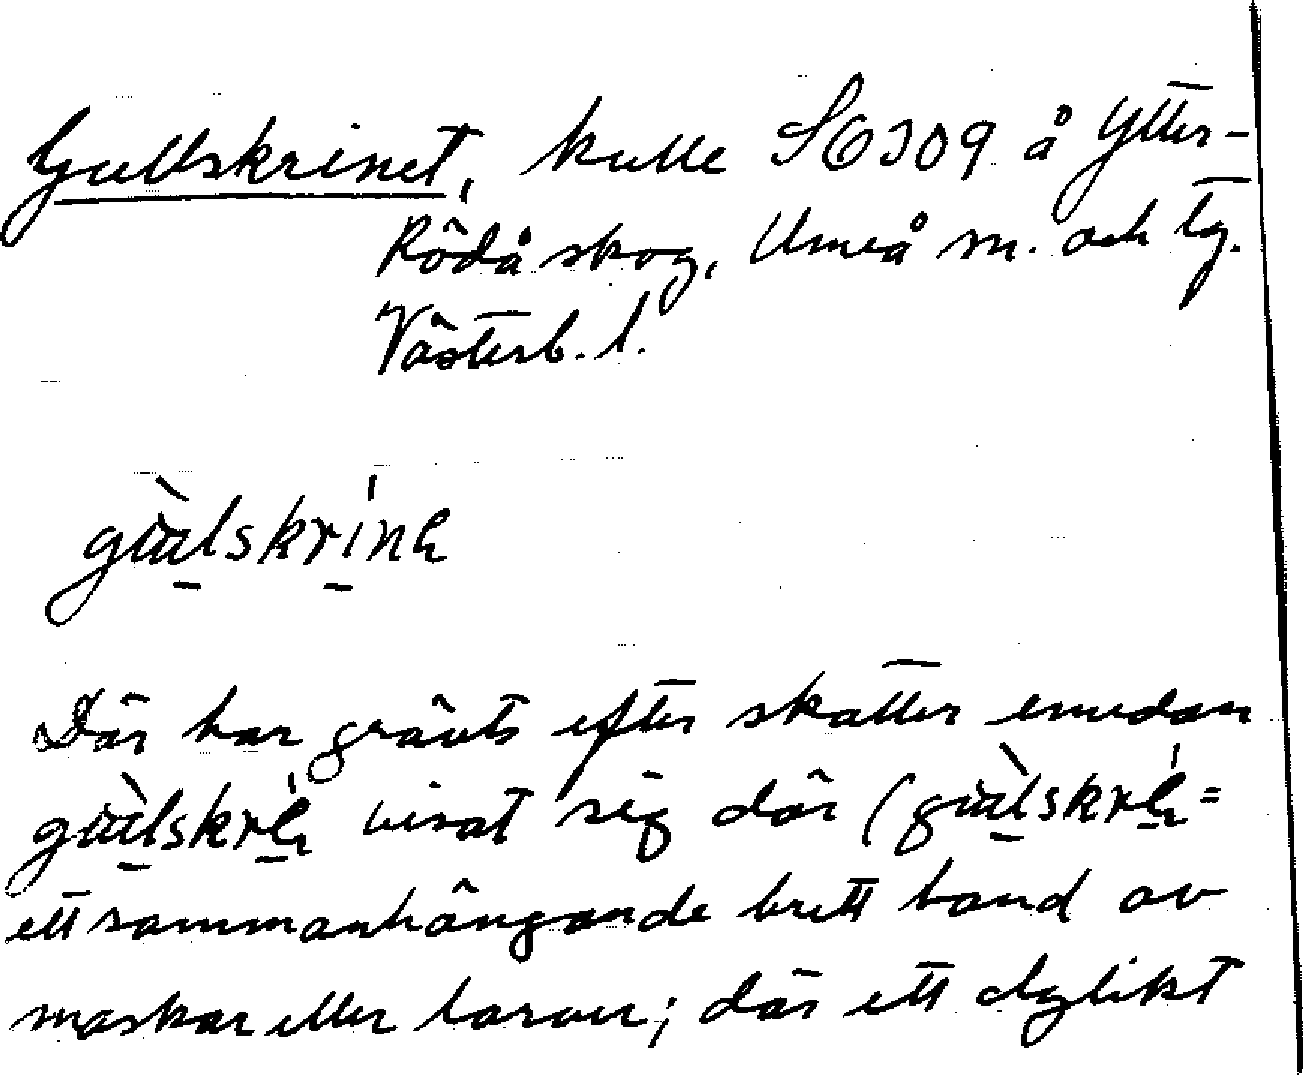 Gullskrinet, kulle SO309 å Ytter-
Rödå skog, Umeå m. och tg.
Västerb. l.
Där har grävts efter skatter emedan
visat sig där (
ett sammanhängande brett band av
maskar eller larver; där ett dylikt